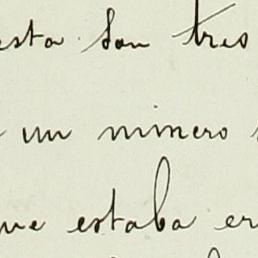 esta son tres
un minero
que estaba en